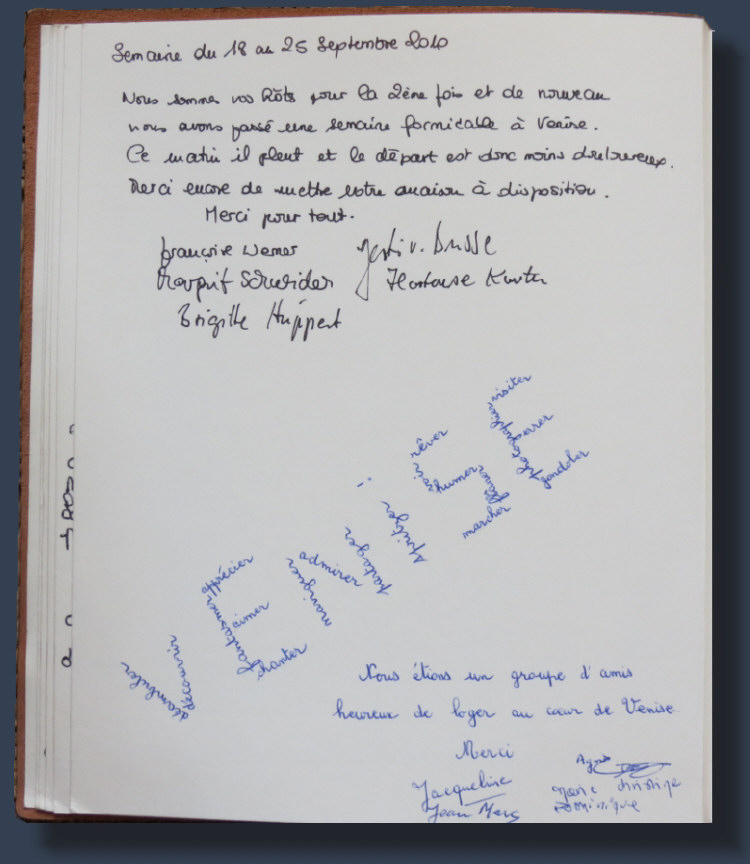 Semaine du 18 au 25 Septembre 2010
Nous sommes vos hôts pour la 2ème fois et de nouveau
nous avons passé une semaine formidable à Venise.
Ce matin il pleut et le départ est donc moins douloureux.
Merci encore de mettre votre maison à disposition.
Merci pour tout.
Françoise Werner
Schneider
Brigitte Huppert
déambuler
découvrir
apprécier
fantasmer
aimer
chanter
naviguer
admirer
partager
rêver
voir
humer
flâner
marcher
visiter
photographier
errer
gondoler
Nous étions un groupe d'amis
heureux de loger au cœur de Venise
Merci
Jacqueline
Jean Marc
Agnès
Marie Christine
Dominique